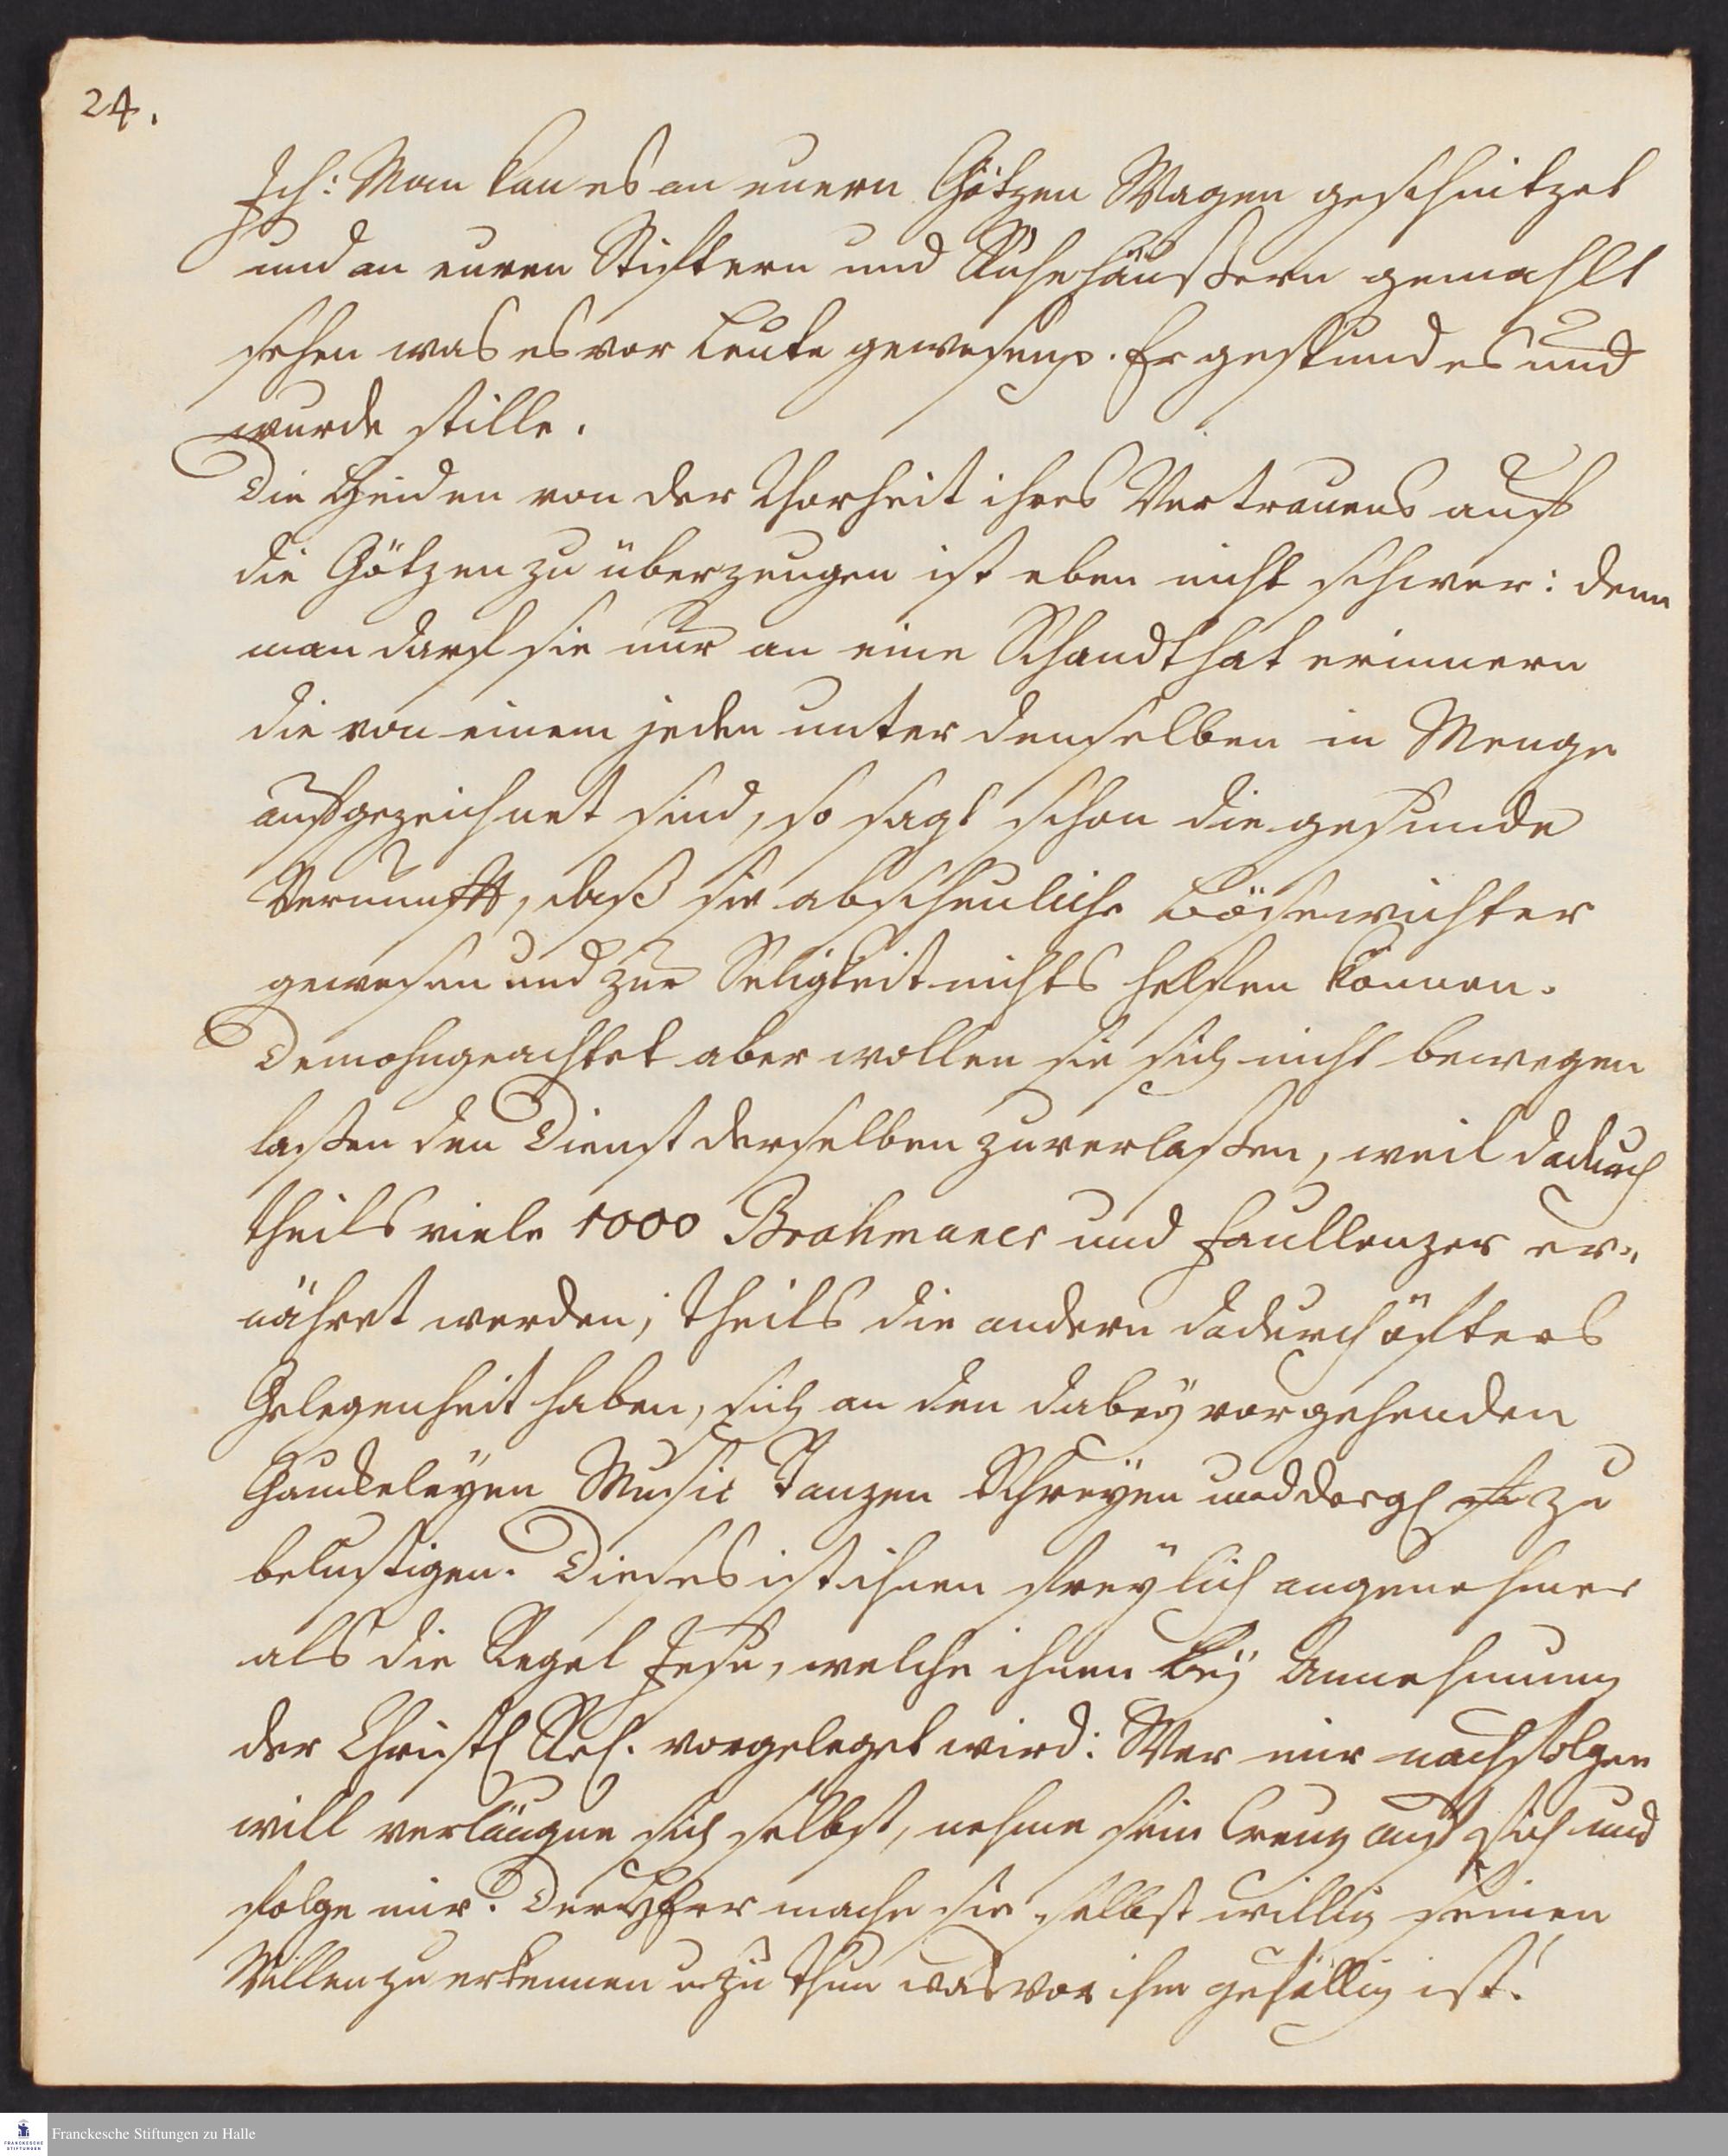 24.
Ich: Man kan es an euern Götzen Wagen geschnitzet
und an euren Stiftern und Ruhehäußern gemahlt
sehen was es vor Leute gewesen p. Er gestund es und
wurde stille.
Die Heiden von der Thorheit ihres Vertrauens auf
die Götzen zu überzeugen ist eben nicht schwer: denn
man darf sie nur an eine Schandthat erinnern
die von einem jeden unter denselben in Menge
aufgezeichnet sind, so sagt schon die gesunde
Vernunfft, daß sie abscheuliche Bösewichter
gewesen und zur Seligkeit nichts helfen können.
Demohngeachtet aber wollen sie sich nicht bewegen
laßen den Dienst derselben zu verlaßen, weil dadurch
theils viele 1000 Brahmaner und Faullenzer er„
nähret werden; theils die andern dadurch öfters
Gelegenheit haben, sich an den dabey vorgehenden
Gauckeleyen Music Tanzen Schreyen und dergl zu
belustigen. Dieses ist ihnen freylich angenehmer
als die Regel Jesu, welche ihnen bey Annehmung
der Christl Rel. vorgeleget wird: Wer mir nachfolgen
will verläugne sich selbst, nehme sein Creuz auf sich und
folge mir. Der Herr mache sie selbst willig seinen
Willen zu erkennen u. zu thun was vor ihm gefällig ist!
Franckesche Stiftungen zu Halle
FRANCKESCHE
STIFTUNGEN